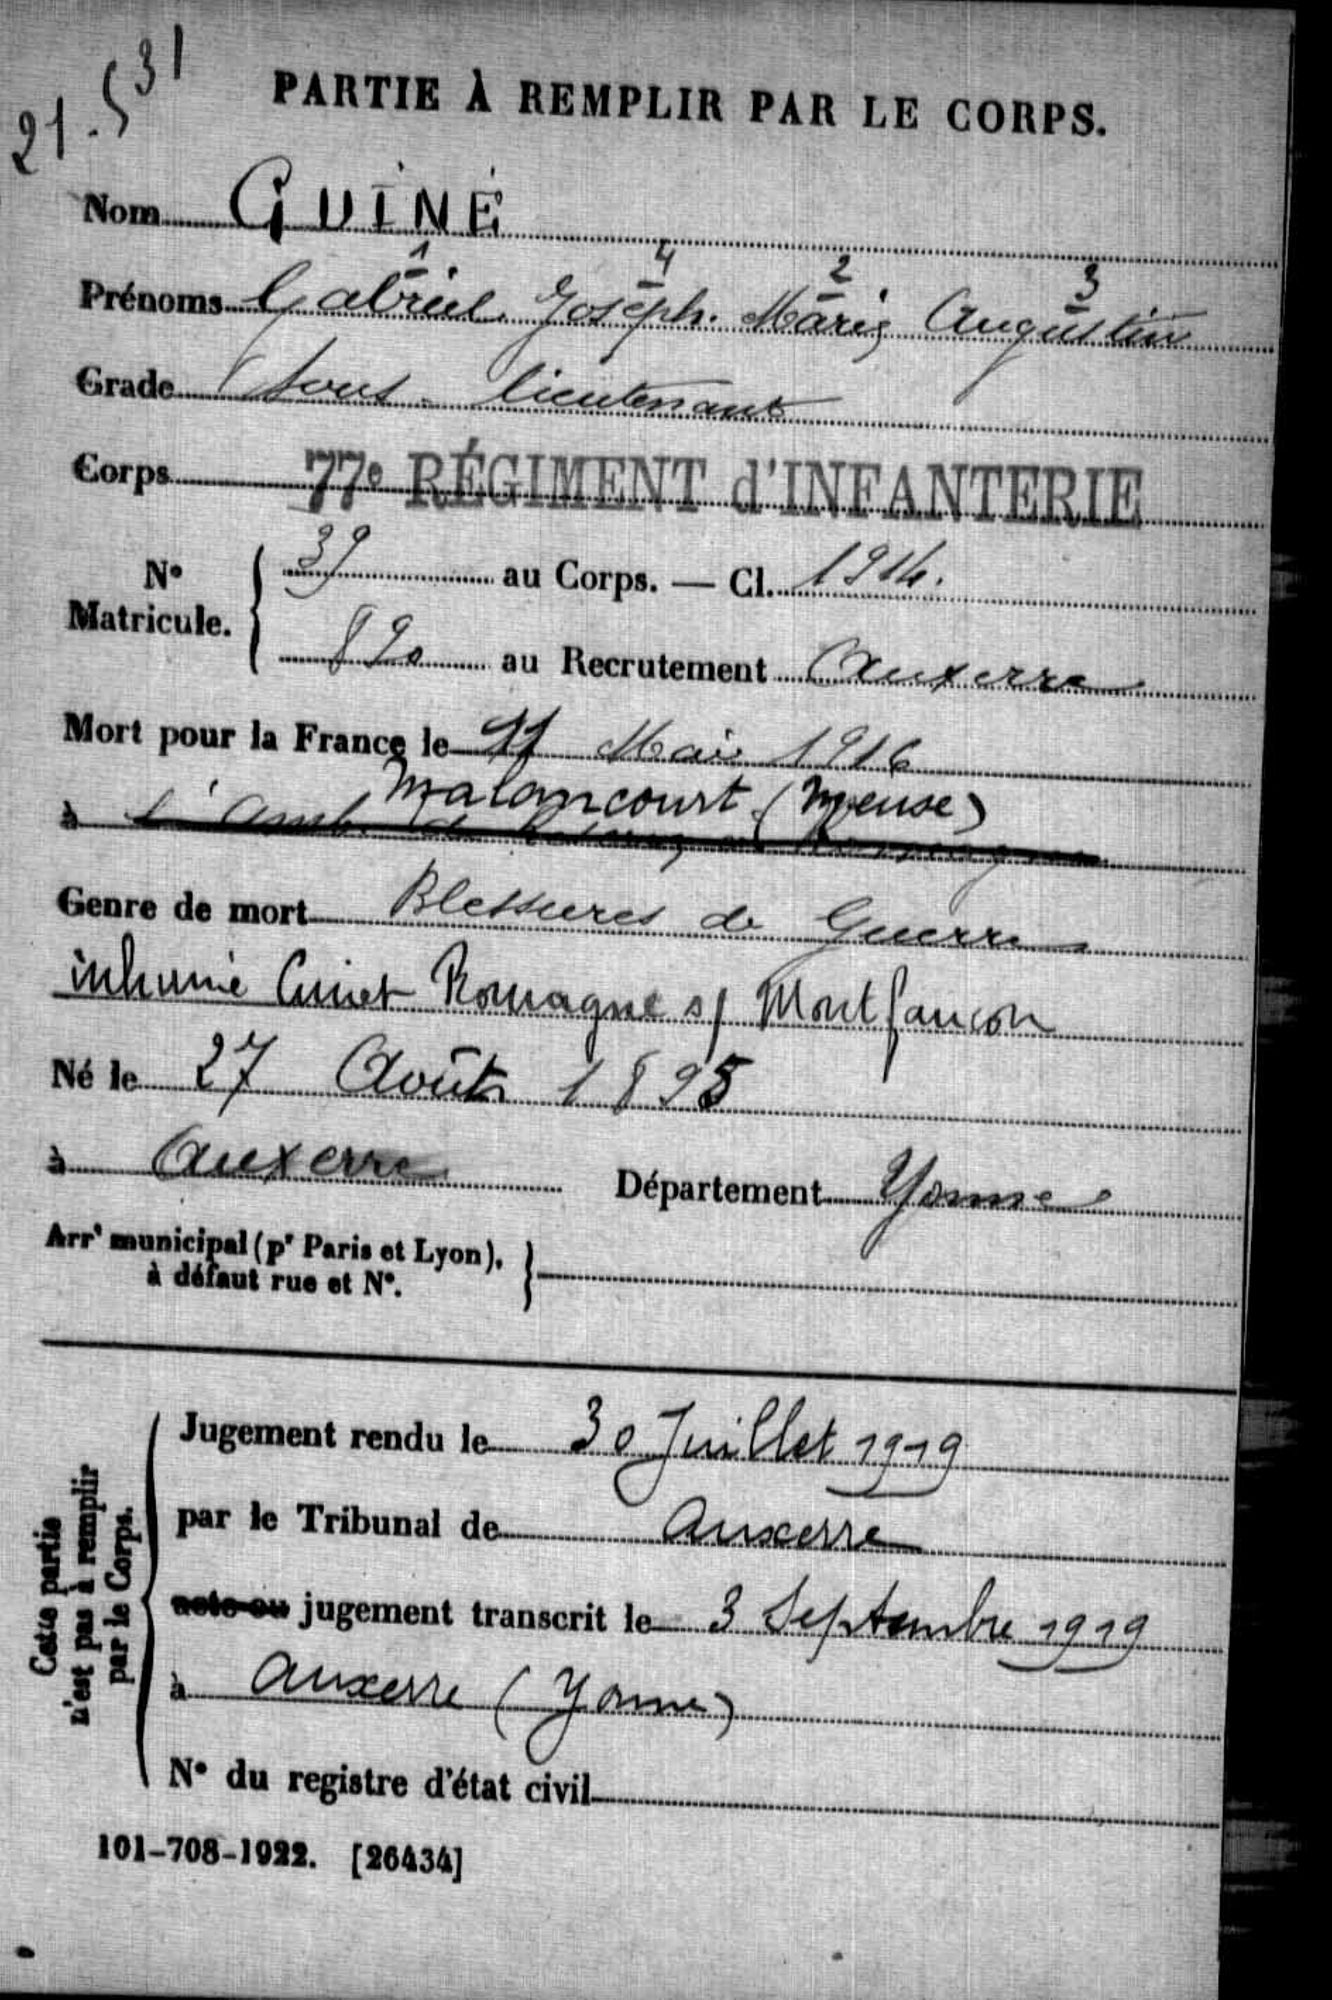 21.531
PARTIE À REMPLIR PAR LE CORPS.
Nom GUINÉ
1 4 2 3
Prénoms Gabriel Joseph Marie Augustin
Grade Sous-lieutenant
Corps 77e RÉGIMENT d'INFANTERIE
No Matricule. { 39 au Corps. — Cl. 1914.
890 au Recrutement Auxerre
Mort pour la France le 11 Mai 1916
Malancourt (Meuse)
à l'Amb. de
Genre de mort Blessures de Guerre
inhumé Cimet Romagne s/ Montfaucon
Né le 27 Août 1895
à Auxerre Département Yonne
Arrt municipal (pr Paris et Lyon),
à défaut rue et No. }
Cette partie
n'est pas à remplir
par le Corps.
Jugement rendu le 30 Juillet 1919
par le Tribunal de Auxerre
acte ou jugement transcrit le 3 Septembre 1919
à Auxerre (Yonne)
No du registre d'état civil
101-708-1922. [26434]